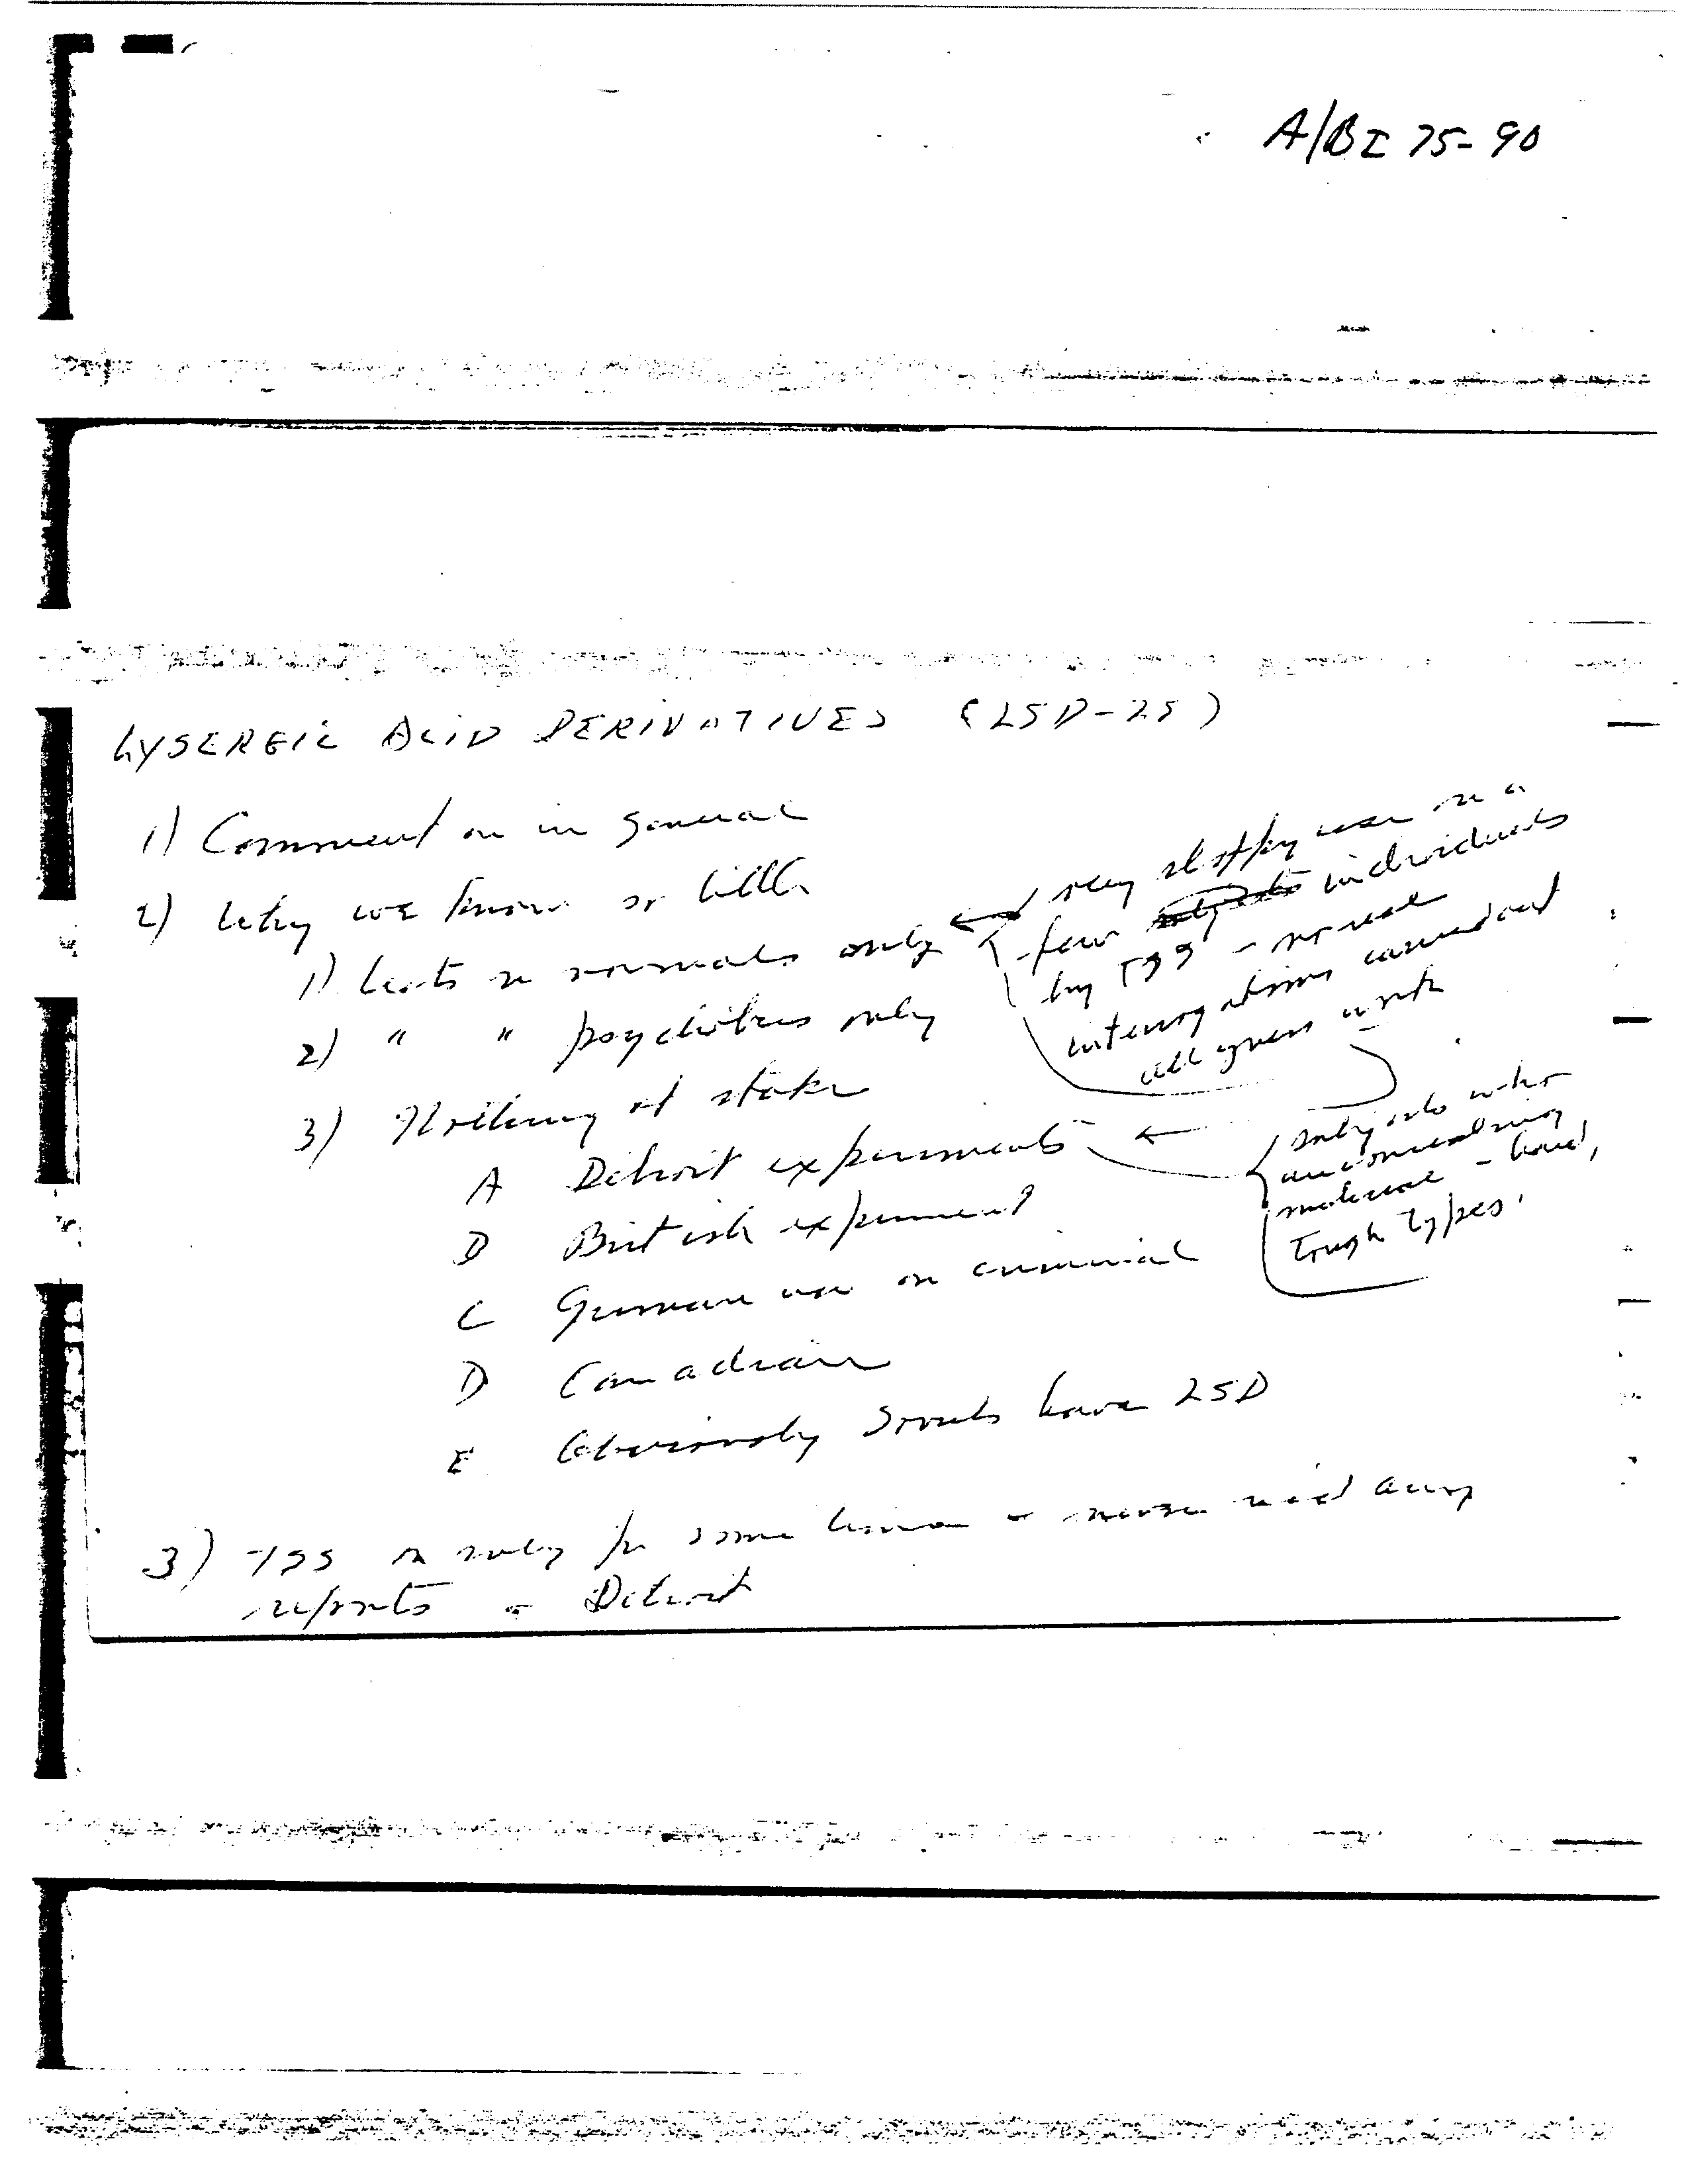 A/BI 75-90
LYSERGIC ACID DERIVATIVES (LSD-25)
1) Comment on in general
2) Why we know so little
1) tests on normals only
2) " " psychotics only
3) Nothing at stake
A Detroit experiments
B British experiment
C German use on criminal
D Canadian
E Obviously Soviets have LSD
3) TSS is only for some time &
reports - Detroit
very sloppy use on a
few individuals
by TSS - no real
interrogations carried out
all guess work
only into
unconscious
material - hard,
tough types.